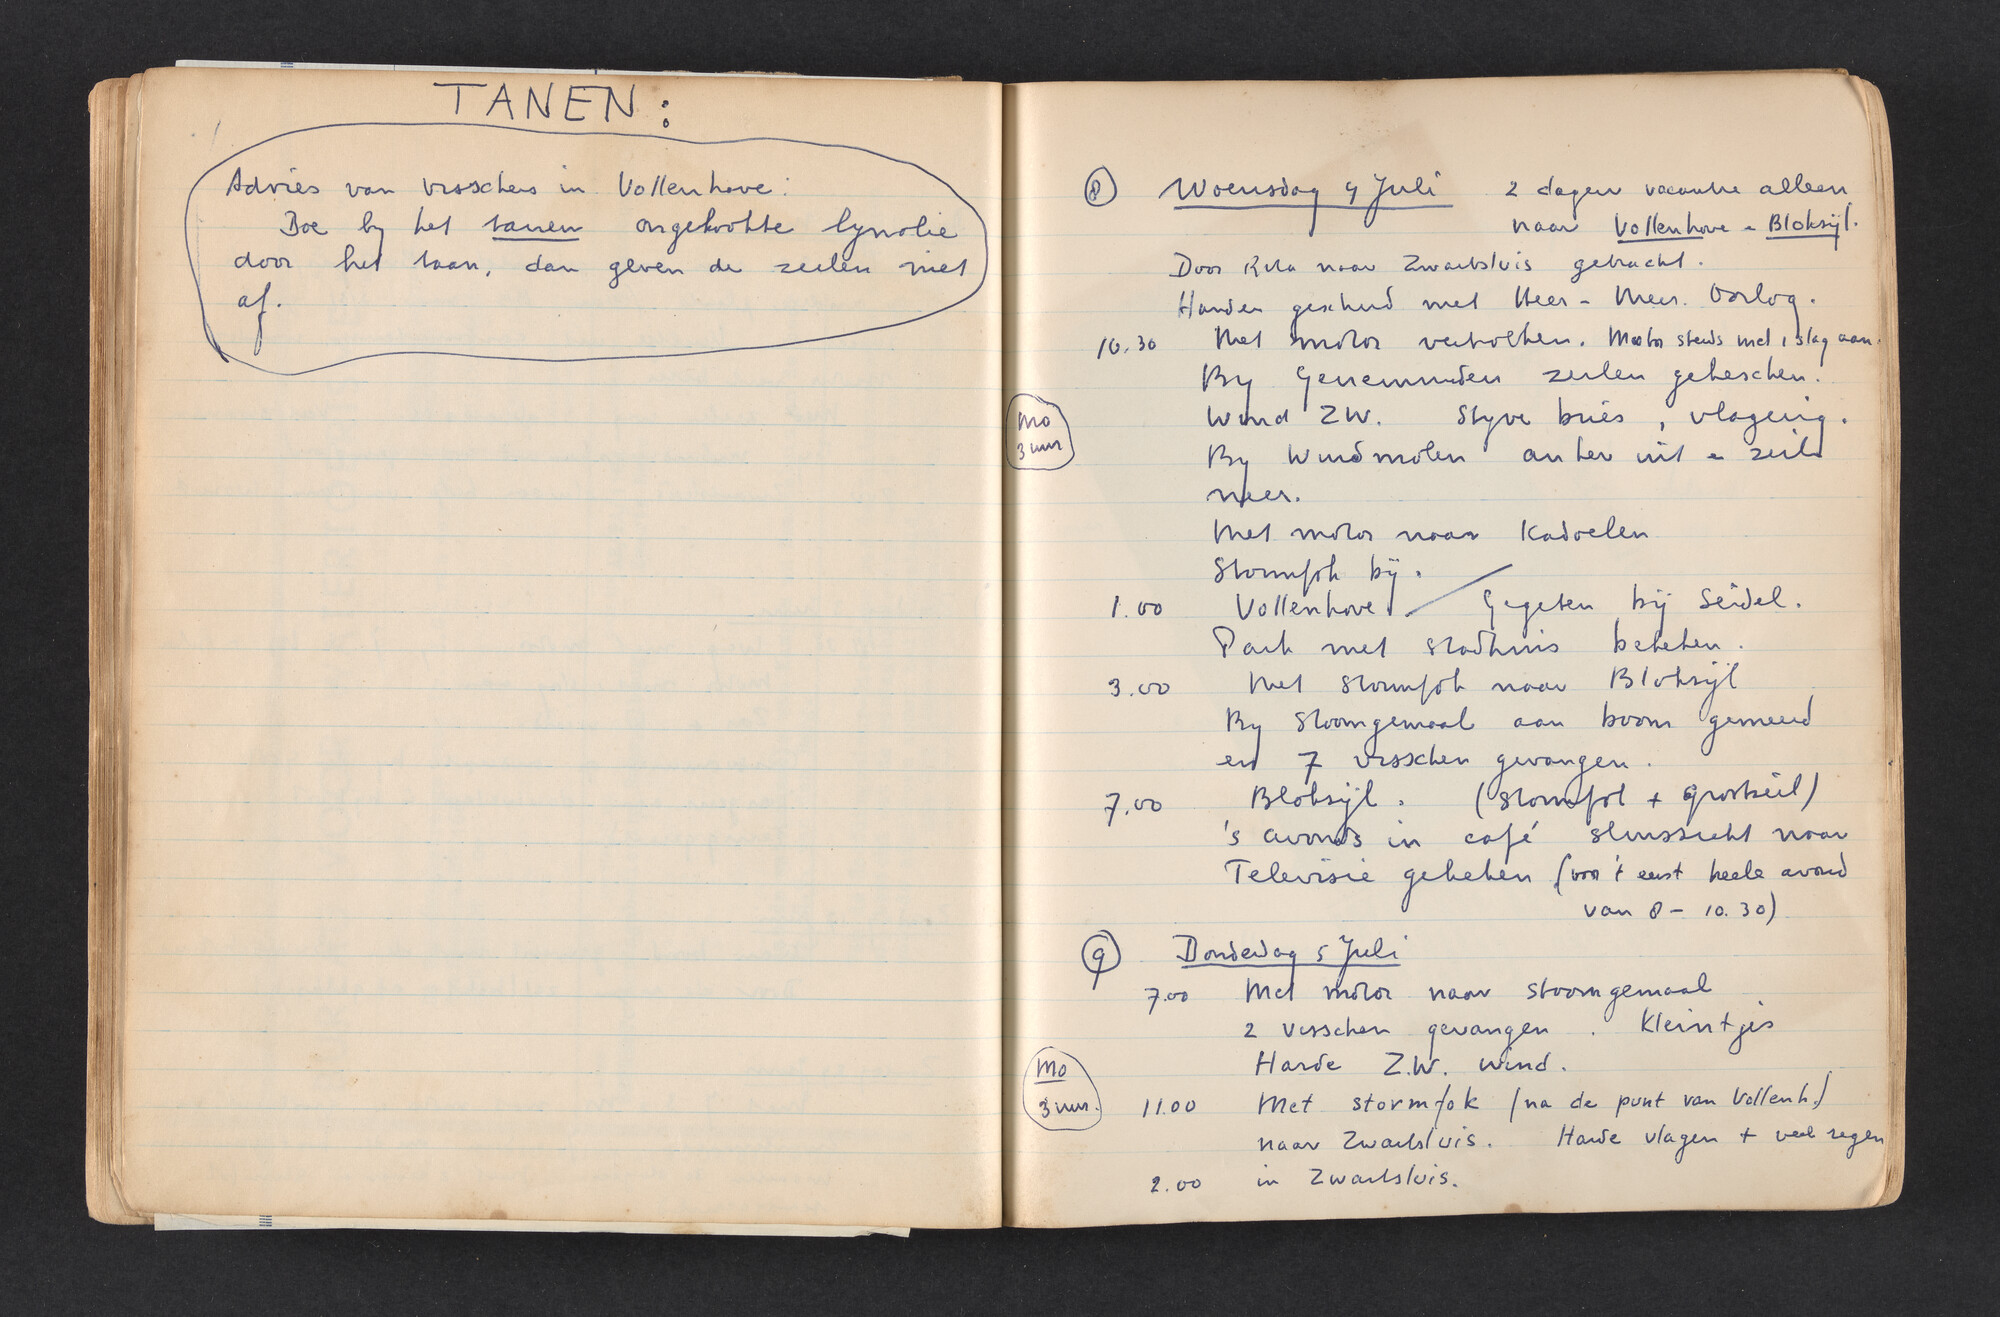 TANEN:
Advies van visschers in Vollenhove:
Doe by het tanen ongekookte lynolie
door het taan, dan geven de zeilen niet
af.
⑧ Woensdag 4 Juli 2 dagen vacantie alleen
naar Vollenhove - Bloksijl.
Door Rita naar Zwartsluis gebracht.
Honden gescheid met Heer - Meer. Oorlog.
10.30 Met motor vertrokken. Motor steeds met 1 slag aan.
By Genemuiden zeilen geheschen.
Wind ZW. Styve bries, vlagerig.
Mo
3 uur
By Windmolen anker uit - zeil
neer.
Met motor naar Kadoelen
Stormfok bij.
1.00 Vollenhove. / Gegeten bij Seidel.
Park met stadhuis bekeken.
3.00 Met stormfok naar Bloksijl
By Stoomgemaal aan boom gemeerd
en 7 visschen gevangen.
7.00 Bloksijl. (Stormfok + grootzeil)
's avonds in café sluiszicht naar
Televisie gekeken (voor 't eerst heele avond
van 8 - 10.30)
⑨ Donderdag 5 Juli
7.00 Met motor naar stoomgemaal
2 visschen gevangen. Kleintjes
Harde Z.W. wind.
Mo
3 uur.
11.00 Met stormfok (na de punt van Vollenh.)
naar Zwartsluis. Harde vlagen + veel regen
2.00 in Zwartsluis.